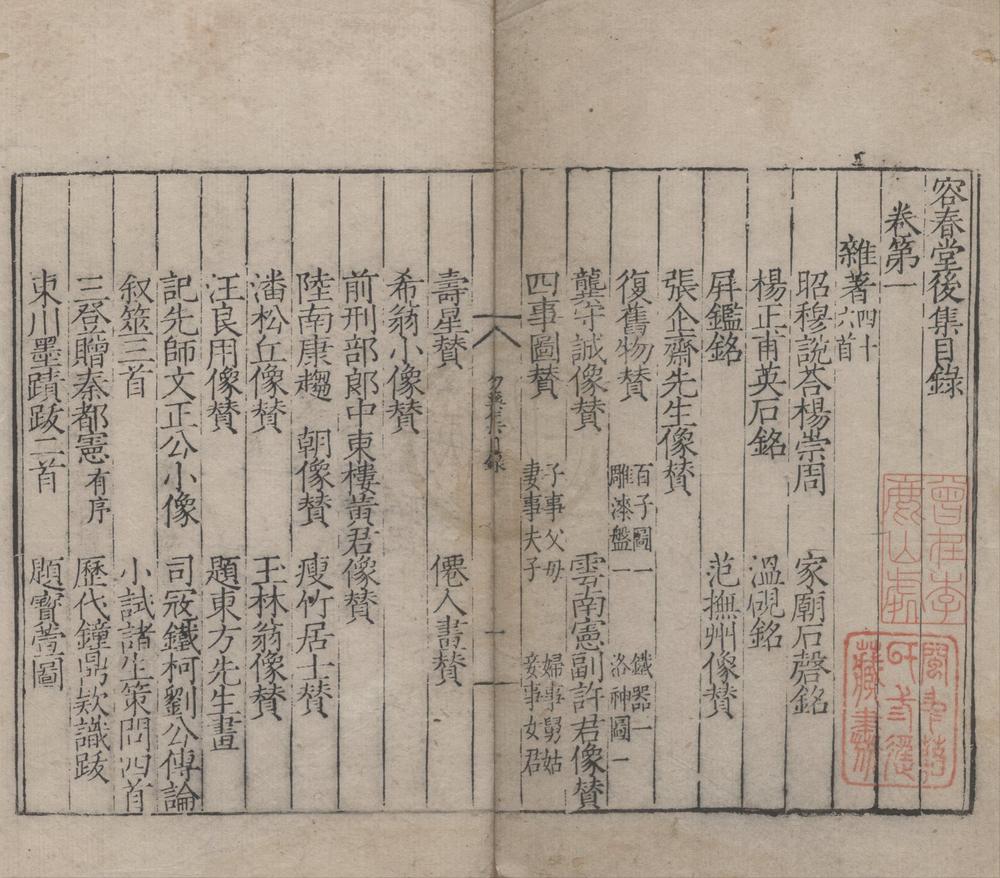 容春堂後集目錄
卷第一
雜著四十六首
昭穆說荅楊崇周 家廟石磬銘
楊正甫英石銘 溫硯銘
屏鑑銘 范撫州像贊
張企齋先生像贊
復舊物贊 百子圖一 雕漆盤一 鐵器一 洛神圖一
龔守誠像贊 雲南憲副許君像贊
四事圖贊 子事父母 妻事夫子 婦事舅姑 妾事女君
集目錄
一
壽星贊 僊人畫贊
希翁小像贊
前刑部郎中東樓黃君像贊
陸南康趨朝像贊 瘦竹居士贊
潘松丘像贊 玉林翁像贊
汪良用像贊 題東方先生畫
記先師文正公小像 司寇鐵柯劉公傳論
叙筮三首 小試諸生策問四首
三登贈秦都憲有序 歷代鐘鼎欵識跋
東川墨蹟跋二首 題寶萱圖
曾在李鹿山處